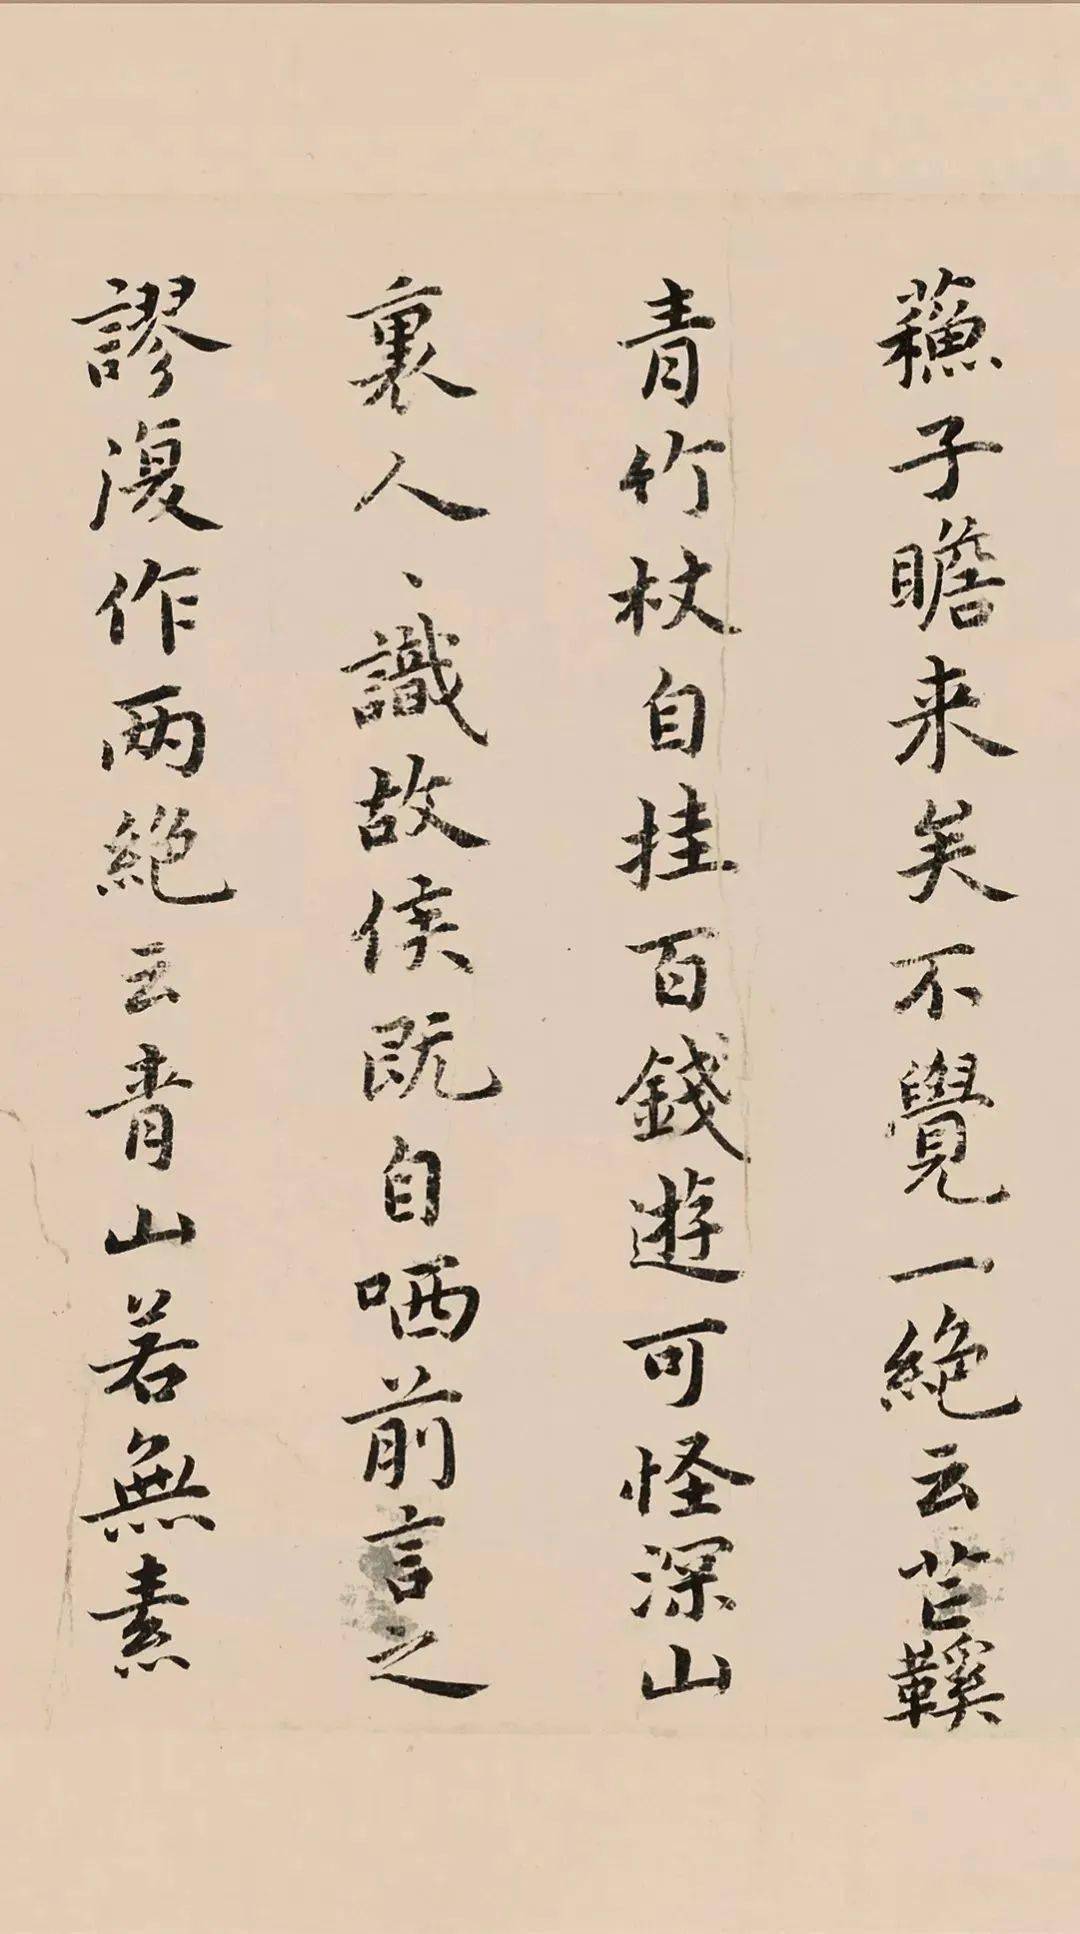 蘇子瞻来矣不覺一絶云芒鞵
青竹杖自挂百錢遊可怪深山
裏人〻識故侯既自哂前言之
謬復作两絶云青山若無素